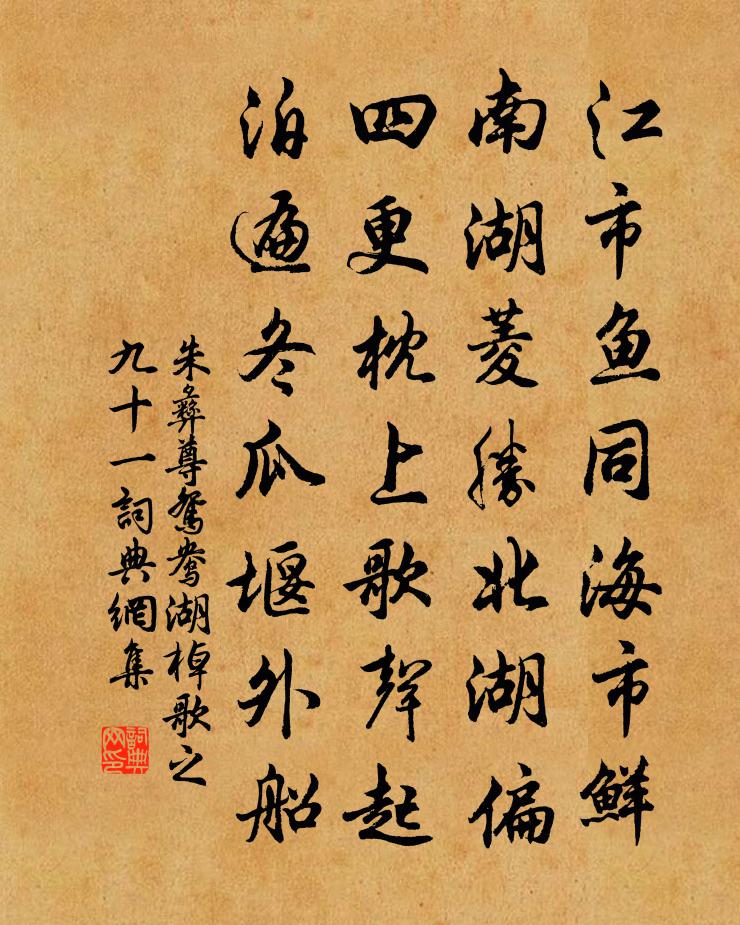 江市鱼同海市鮮
南湖菱勝北湖偏
四更枕上歌聲起
泊遍冬瓜堰外船
朱彝尊鴛鴦湖棹歌之
九十一詞典網集
詞典网印